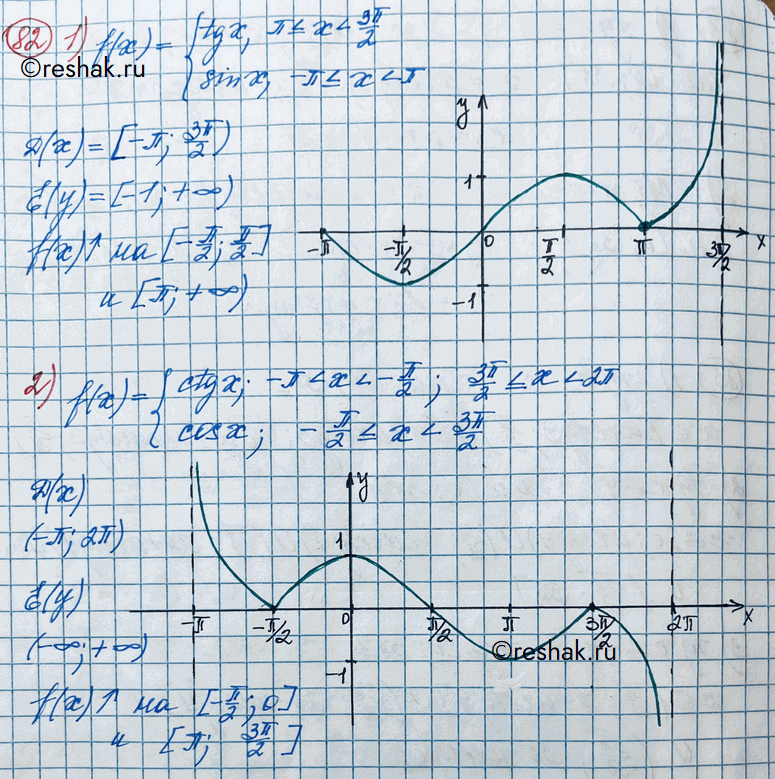 82 1) f(x) = { tg x, π ≤ x < 3π/2
sin x, -π ≤ x < π
©reshak.ru
D(x) = [-π; 3π/2)
E(y) = [-1; +∞)
f(x)↑ на [-π/2; π/2]
и [π; +∞)
y
1
-π -π/2 0 π/2 π 3π/2 x
-1
2) f(x) = { ctg x; -π < x < -π/2; 3π/2 ≤ x < 2π
cos x; -π/2 ≤ x < 3π/2
D(x)
(-π; 2π)
E(y)
(-∞; +∞)
f(x)↑ на [-π/2; 0]
и [π; 3π/2]
y
1
-π -π/2 0 π/2 π 3π/2 2π x
-1
©reshak.ru